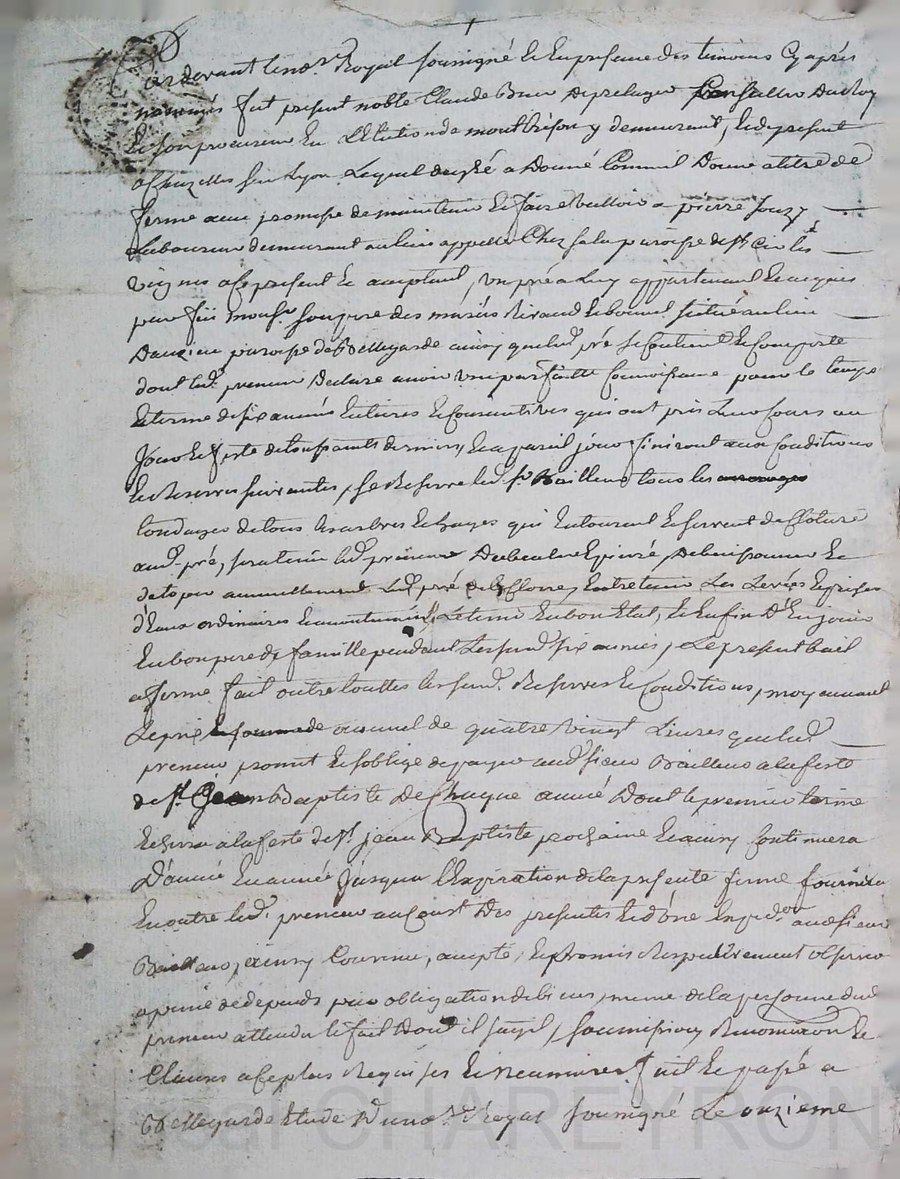 Pardevant le no.re Royal soussigné et en presence des temoins cy aprés
nommés fut present noble Claude Du Roy
et son procureur en L'Election de montbrison y demeurant, et de present
a Chazelles sur Lyon Lequel de gré a Donné Comme il Donne a titre de
ferme avec promesse de maintenir et faire valloir a pierre
Laboureur demeurant au lieu appellé Chez paroisse de st Cir les
vignes a ce present et acceptant, un pré a Luy appartenant et acquis
par feu mons.r son pere des mariés Rivaud et situé au lieu
paroisse de Bellegarde ainsy que led. pré se Contient et Comporte
dont led. preneur Declare avoir une parfaitte Connoissance pour le temps
et terme de six années entieres et consecutives qui ont pris Leur Cours au
Jour et feste de toussaints dernier et a pareil jour finiront aux Conditions
et Reserves suivantes, se Reserve led. s.r Bailleur tous les
tondages de tous les arbres et hayes qui entourent et servent de Cloture
aud. pré, sera tenu led. preneur
annuellement Led. pré de le Clorre, Entretenir Les Levées et prises
d'Eaux ordinaires et accoutumées, Le tenir en bon Etat, et Enfin D'en jouir
en bon pere de famille pendant Lesd. six années, Le present bail
a ferme fait outre touttes lesd. Reserves et Conditions, moyennant
Le prix annuel de quatre vingt Livres que led.
preneur promet et s'oblige de payer aud. sieur Bailleur a la feste
de st Jean Baptiste De Chaque année Dont le premier terme
Echerra a la feste de st jean Baptiste prochaine et ainsy Continuera
D'année en année Jusqu'a l'Expiration de la presente ferme fournira
En outre led. preneur au Coust Des presentes et d'une Expéd.on aud. sieur
Bailleur, ainsy Convenu, accepté, et promis Respectivement observer
a peine de depends par obligation de biens, meme de la personne dud.
preneur attendu le fait Dont il s'agit, soumissions Renonciations et
Clauses a ce plus Requises et necessaires fait et passé a
Bellegarde Etude Dud. no.re Royal soussigné Le onzieme
CHAREYRON